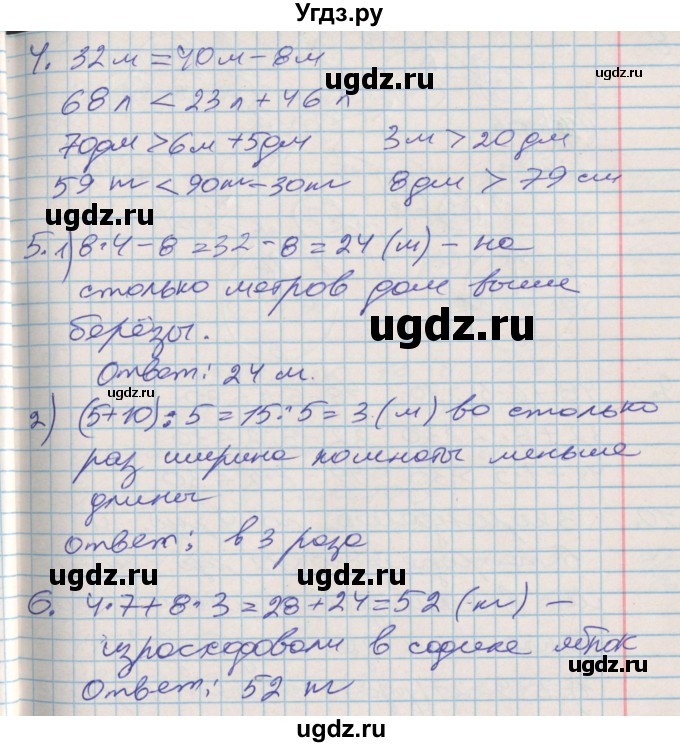 Угдз.ру
4. 32 м = 40 м - 8 м
ugdz.ru
68 л < 23 л + 46 л
70 дм > 6 м + 5 дм 3 м > 20 дм
59 т < 90 т - 30 т 8 дм > 79 см
ugdz.ru ugdz.ru
5. 1) 8·4 - 8 = 32 - 8 = 24 (м) - на
столько метров дом выше
берёзы. ugdz.ru
Ответ: 24 м.
ugdz.ru
2) (5+10) : 5 = 15 : 5 = 3 (м) во столько
раз ширина комнаты меньше
длины
Ответ: в 3 раза
ugdz.ru ugdz.ru
6. 4·7 + 8·3 = 28 + 24 = 52 (кг) -
израсходовали в садике яблок
Ответ: 52 кг
ugdz.ru ugdz.ru